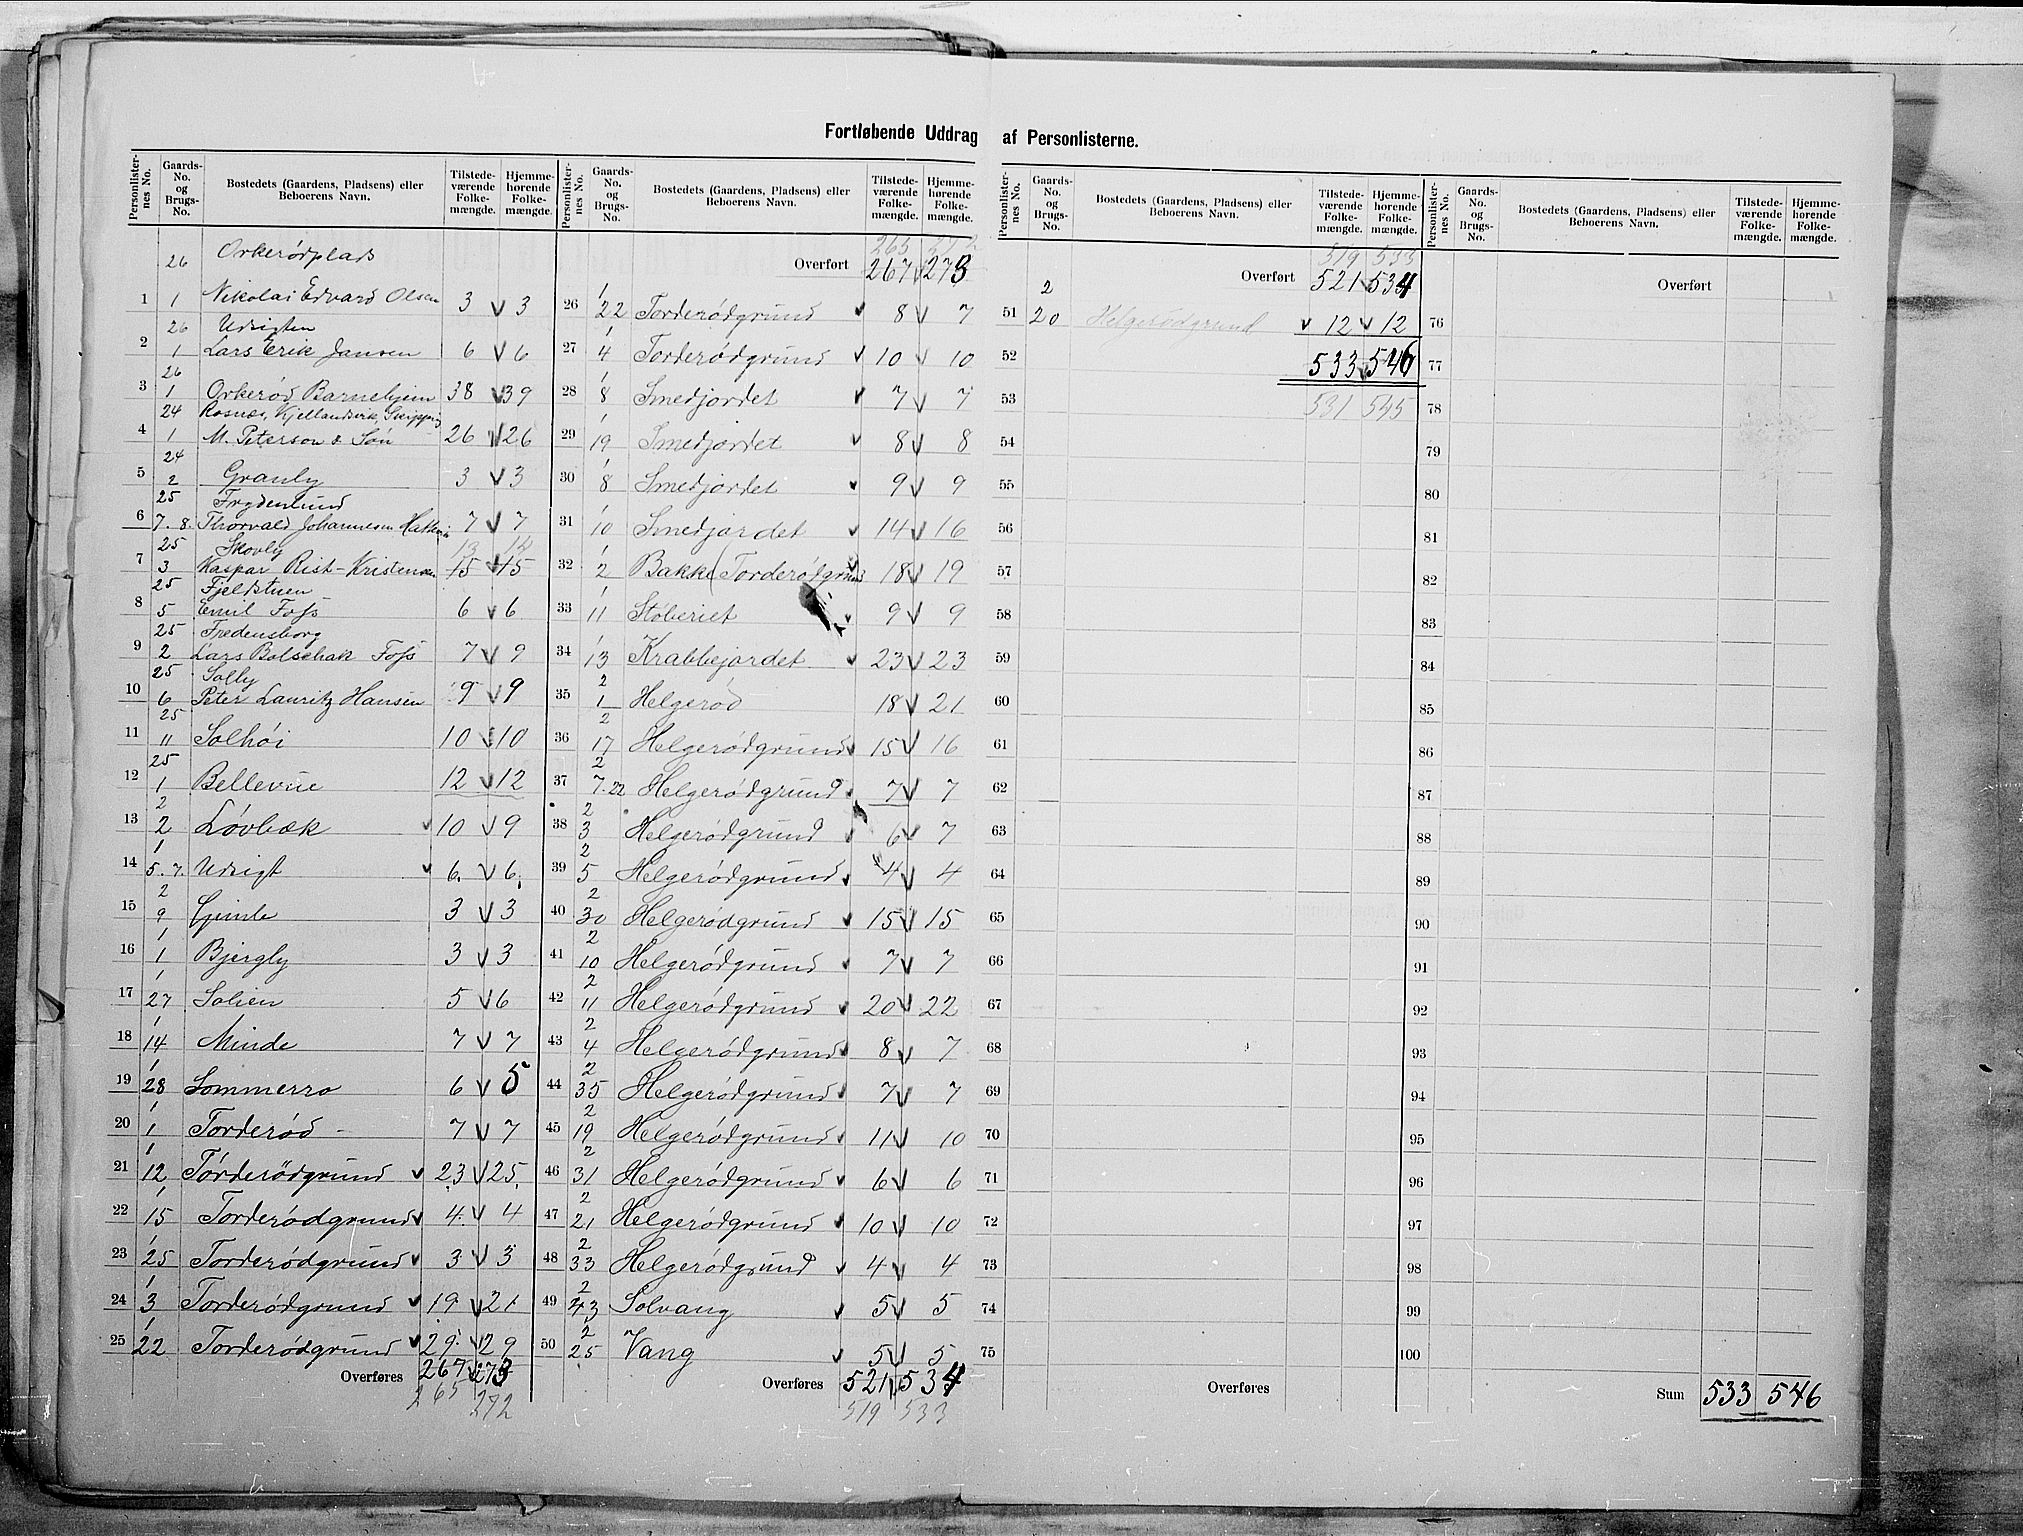 Fortløbende Uddrag af Personlisterne.
Personlisternes No. Gaards-No. og Brugs-No. Bostedets (Gaardens, Pladsens) eller Beboerens Navn. Tilstedeværende Folkemængde. Hjemmehørende Folkemængde.
26 Orkerødplads
1 1 Nikolai Edvard Olsen 3 3
26 Udsigten
2 1 Lars Erik Jansen 6 6
26
3 1 Orkerød Barnehjem 38 39
24 Rosnæs, Kjellandsvik,
4 1 M. Peterson & Søn 26 26
24
5 2 Granly 3 3
25 Frydenlund
6 7. 8. Thorvald Johannesen 7 7
25 Skovly 13 12
7 3 Kaspar Rist-Kristensen 15 15
25 Fjeldstuen
8 5 Emil Foss 6 6
25 Fredensborg
9 2 Lars Bolschak Foss 7 9
25 Solly
10 6 Peter Lauritz Hansen 9 9
25
11 11 Solhøi 10 10
25
12 1 Bellevue 12 12
2
13 2 Løvbæk 10 9
1
14 5. 7. Udsigt 6 6
2
15 9 Gimle 3 3
1
16 1 Bjergly 3 3
1
17 27 Solien 5 6
1
18 14 Minde 7 7
1
19 28 Sommerro 6 5
1
20 1 Torderød 7 7
1
21 12 Torderødgrund 23 25
1
22 15 Torderødgrund 4 4
1
23 25 Torderødgrund 3 3
1
24 3 Torderødgrund 19 21
1
25 22 Torderødgrund 29 29
Overføres 267 273
265 272
Personlisternes No. Gaards-No. og Brugs-No. Bostedets (Gaardens, Pladsens) eller Beboerens Navn. Tilstedeværende Folkemængde. Hjemmehørende Folkemængde.
265 272
Overført 267 273
1
26 22 Torderødgrund 8 7
1
27 4 Torderødgrund 10 10
1
28 8 Smedjordet 7 7
1
29 19 Smedjordet 8 8
1
30 8 Smedjordet 9 9
1
31 10 Smedjordet 14 16
1
32 2 Bakke (Torderødgrund 18 19
1
33 11 Støberiet 9 9
1
34 13 Krabbejordet 23 23
2
35 1 Helgerød 18 21
2
36 17 Helgerødgrund 15 16
2
37 7. 22 Helgerødgrund 7 7
2
38 3 Helgerødgrund 6 7
2
39 5 Helgerødgrund 4 4
2
40 30 Helgerødgrund 15 15
2
41 10 Helgerødgrund 7 7
2
42 11 Helgerødgrund 20 22
2
43 4 Helgerødgrund 8 7
2
44 35 Helgerødgrund 7 7
2
45 19 Helgerødgrund 11 10
2
46 31 Helgerødgrund 6 6
2
47 21 Helgerødgrund 10 10
2
48 33 Helgerødgrund 4 4
2
49 43 Solvang 5 5
2
50 25 Vang 5 5
Overføres 521 534
519 533
Personlisternes No. Gaards-No. og Brugs-No. Bostedets (Gaardens, Pladsens) eller Beboerens Navn. Tilstedeværende Folkemængde. Hjemmehørende Folkemængde.
519 533
Overført 521 534
2
51 20 Helgerødgrund 12 12
52 533 546
53 531 545
54
55
56
57
58
59
60
61
62
63
64
65
66
67
68
69
70
71
72
73
74
75
Overføres
Personlisternes No. Gaards-No. og Brugs-No. Bostedets (Gaardens, Pladsens) eller Beboerens Navn. Tilstedeværende Folkemængde. Hjemmehørende Folkemængde.
Overført
76
77
78
79
80
81
82
83
84
85
86
87
88
89
90
91
92
93
94
95
96
97
98
99
100
Sum 533 546